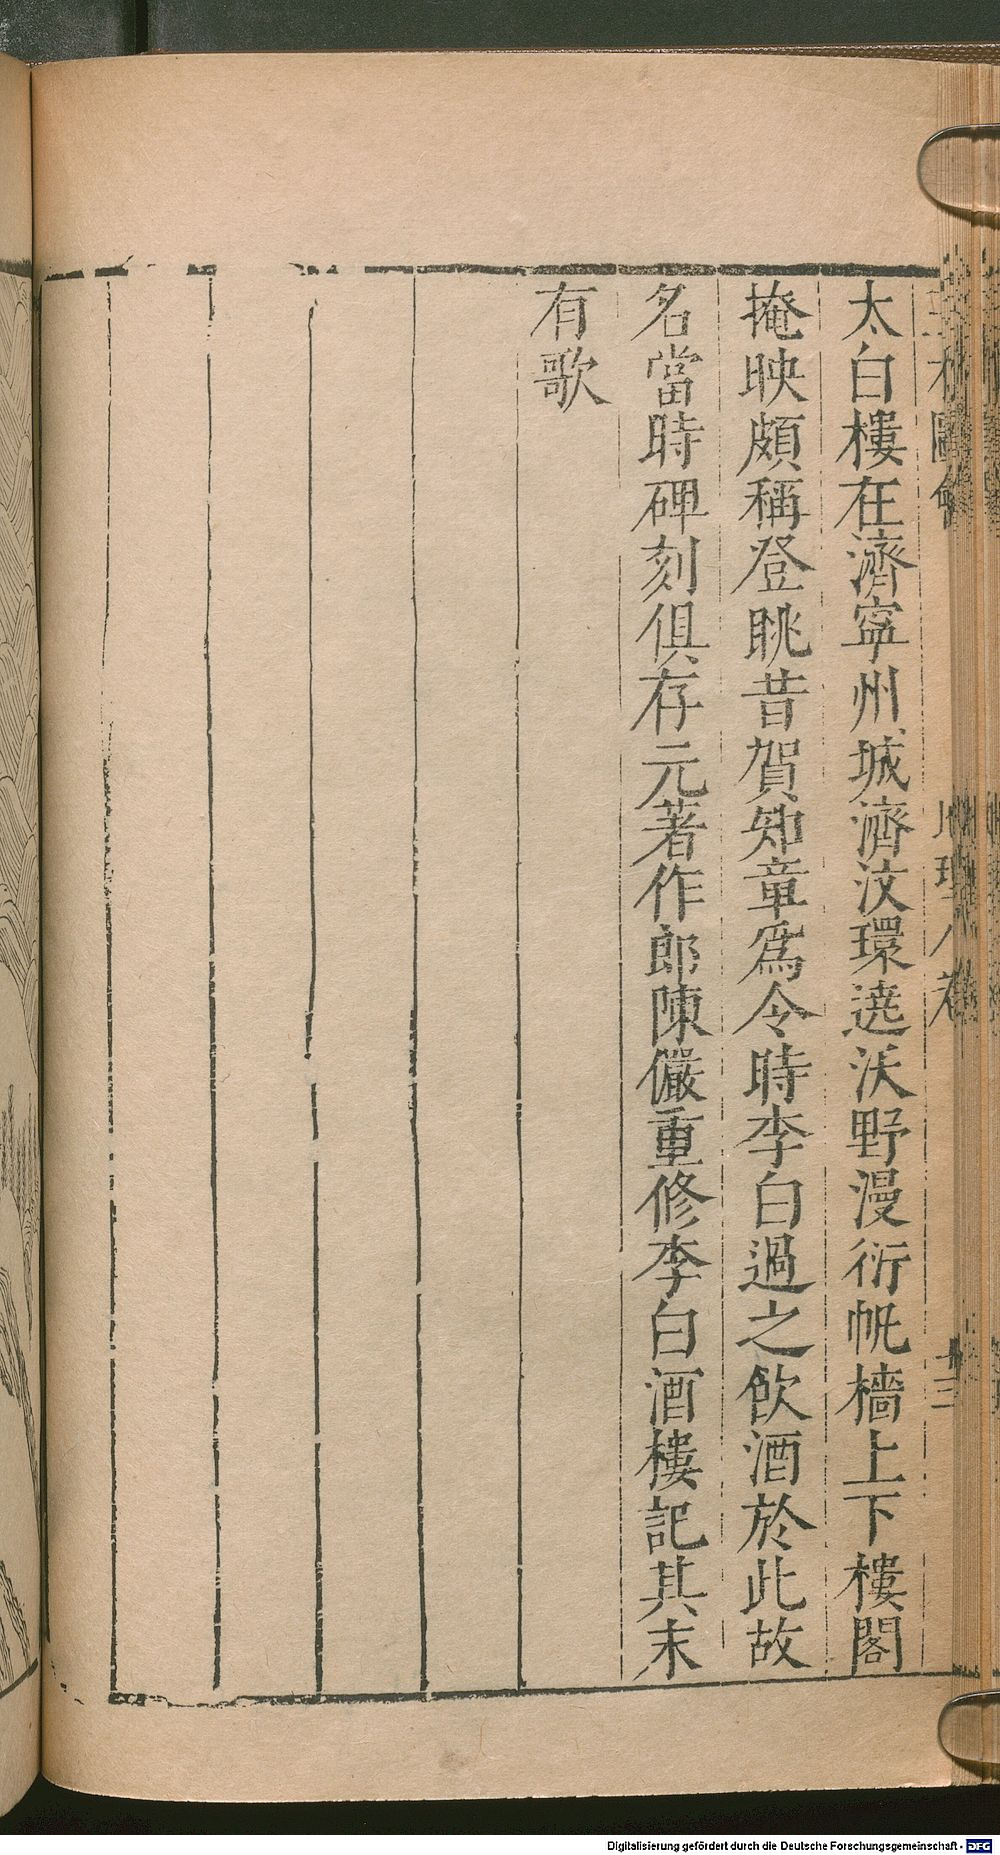 太白樓在濟寧州城濟汶環遶沃野漫衍帆檣上下樓閣
掩映頗稱登眺昔賀知章爲令時李白過之飲酒於此故
名當時碑刻俱存元著作郎陳儼重修李白酒樓記其末
有歌
Digitalisierung gefördert durch die Deutsche Forschungsgemeinschaft - DFG